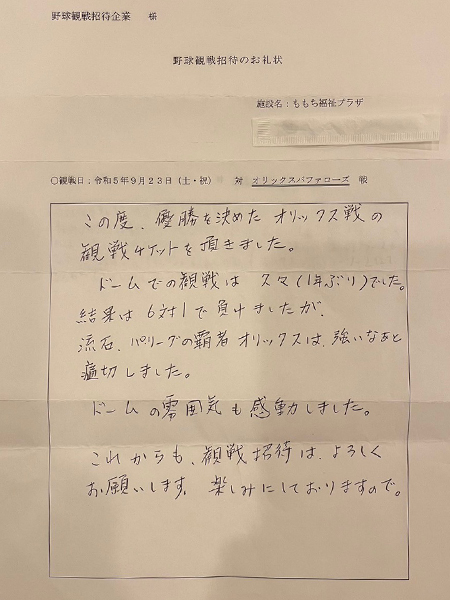 野球観戦招待企業 様
野球観戦招待のお礼状
施設名：ももち福祉プラザ
○観戦日：令和5年9月23日（土・祝） 対 オリックスバファローズ 戦
この度、優勝を決めたオリックス戦の
観戦チケットを頂きました。
ドームでの観戦は久々(1年ぶり)でした。
結果は6対1で負けましたが、
流石、パリーグの覇者オリックスは、強いなあと
痛切しました。
ドームの雰囲気も感動しました。
これからも、観戦招待は、よろしく
お願いします。楽しみにしておりますので。